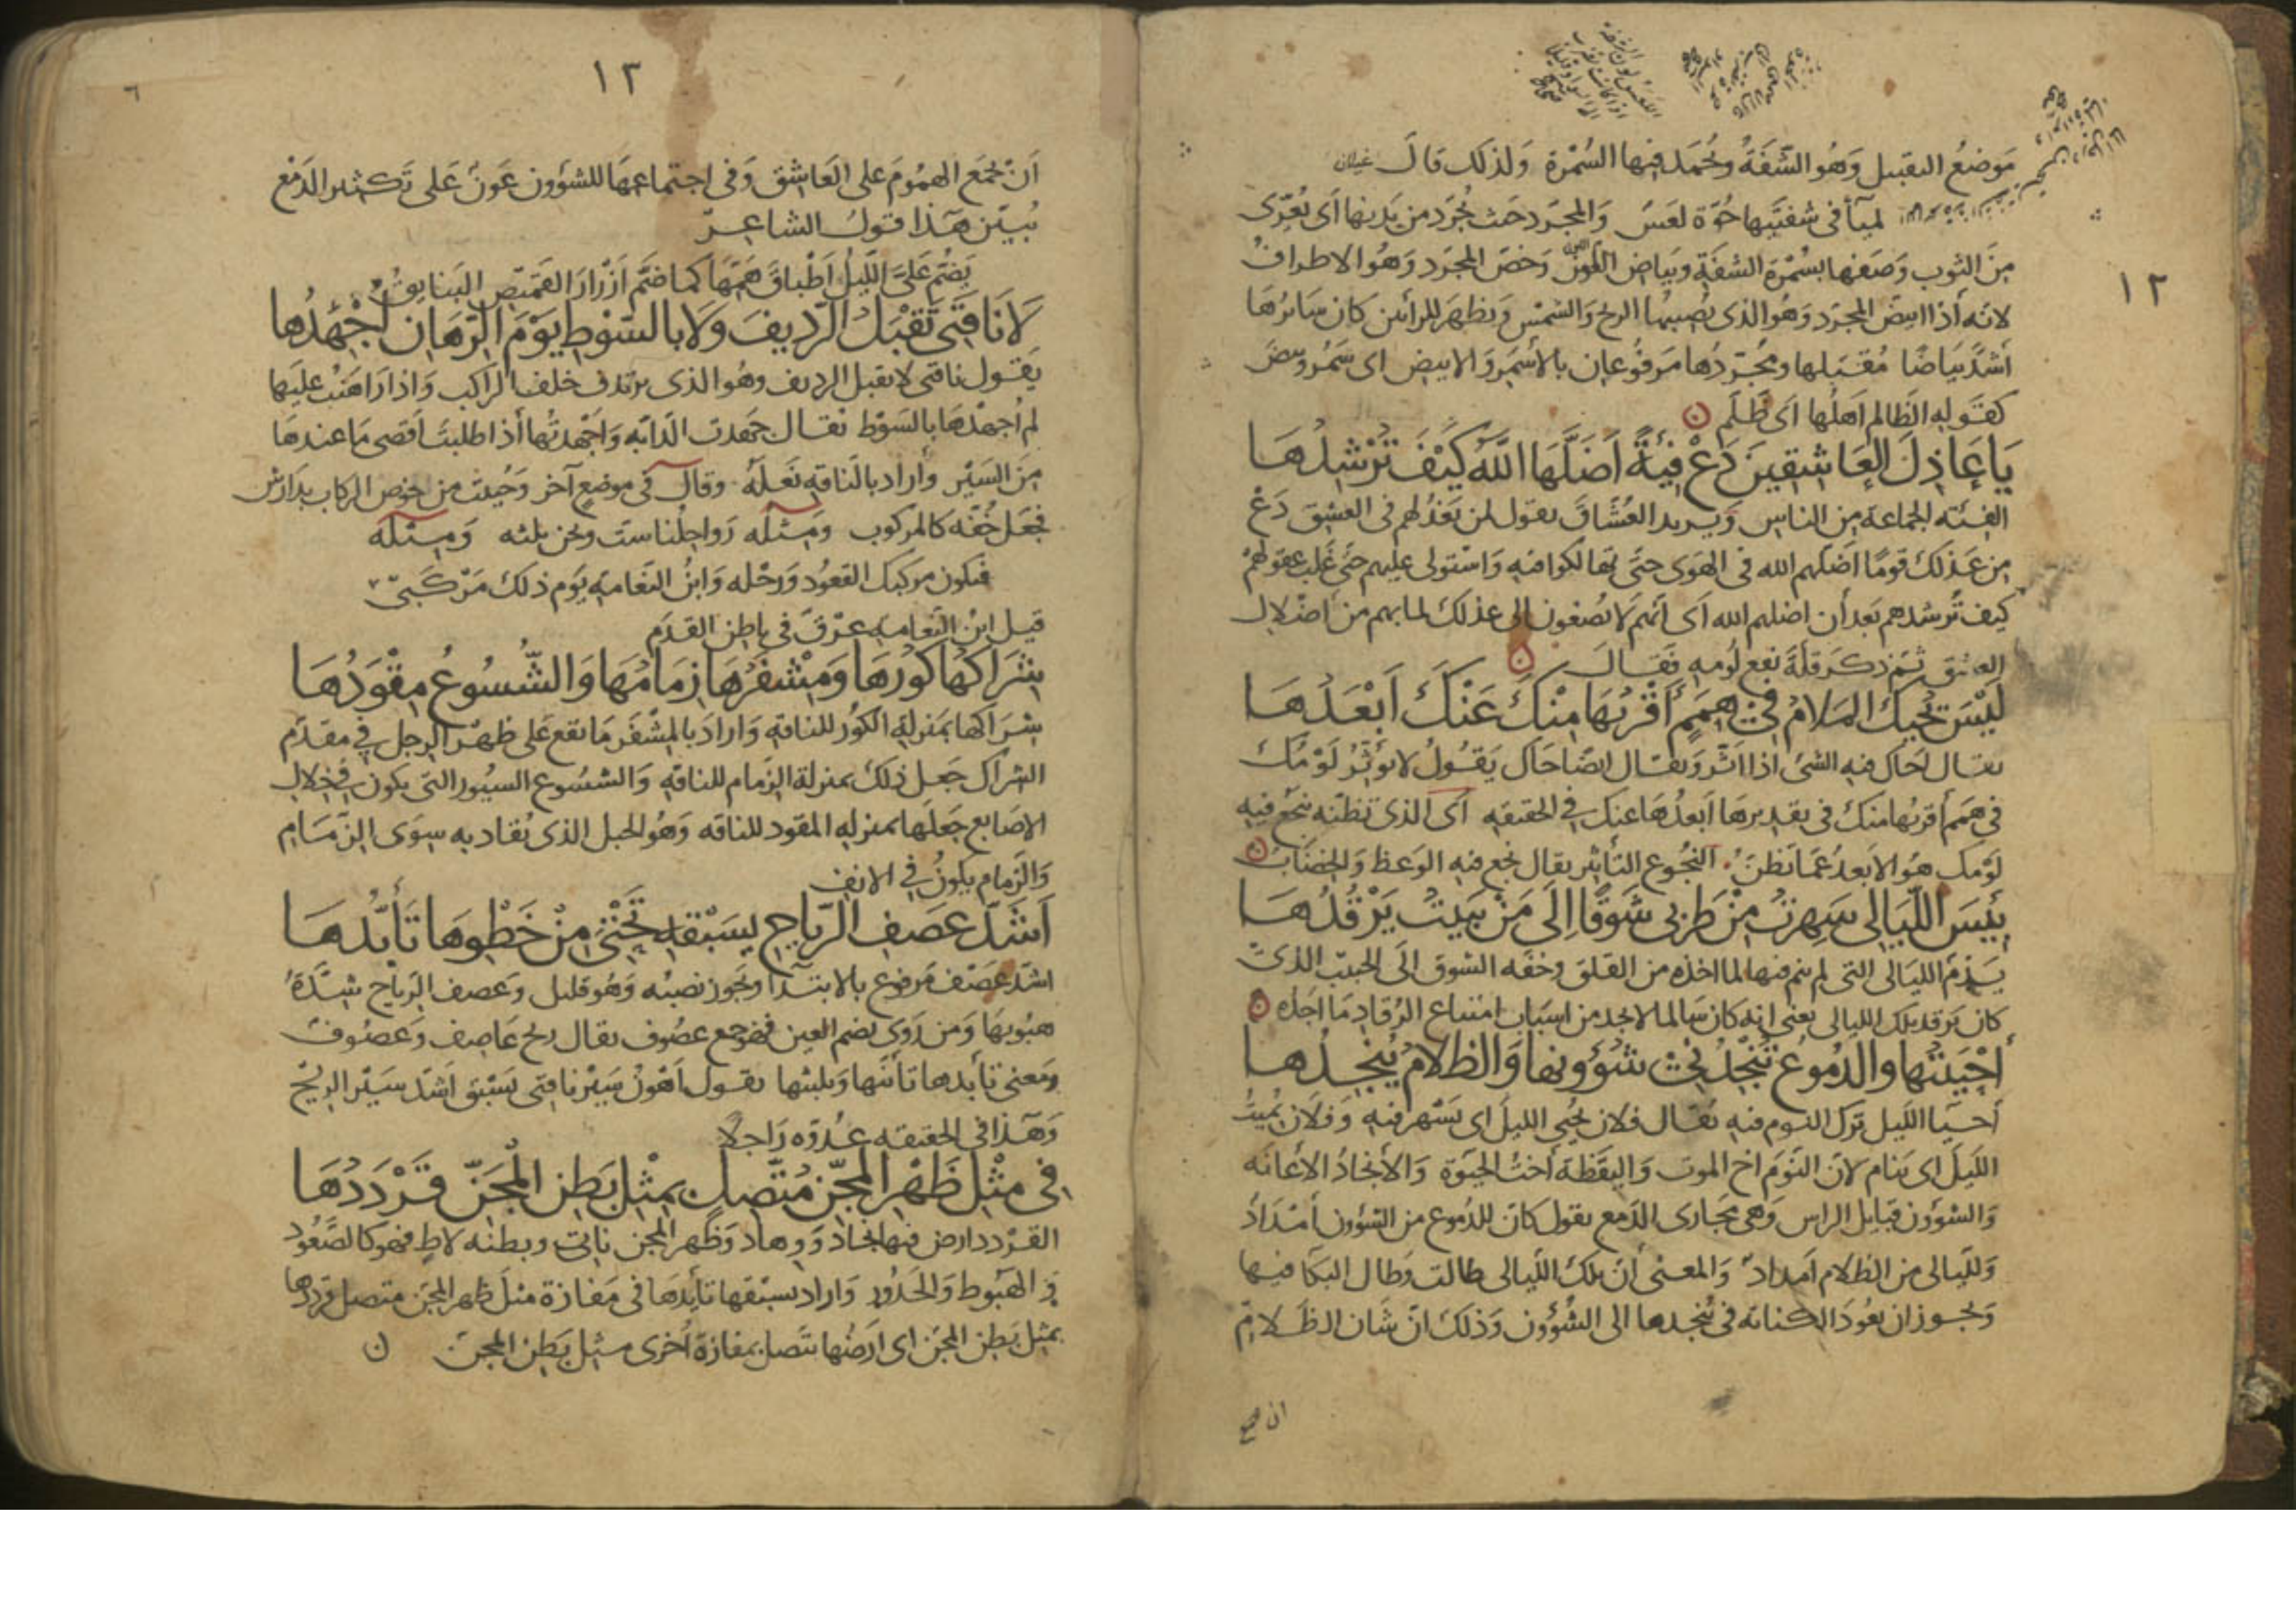 موضع التقبيل وهو الشفة وتحمد فيها السمرة ولذلك قال غيلان
لمياء في شفتيها حوة لعس والمجرد حيث تجرد من بدنها أي تعرى
من الثوب وصفها بسمرة الشفة وبياض اللون وخص المجرد وهو الاطراف
لانه اذا ابيض المجرد وهو الذى يصيبها الريح والشمس ويظهر للرائين كان سائرها
أشد بياضا مقبلها ومجردها مرفوعان بالأسمر والابيض اى سمر وبيض
كقوله الظالم اهلها اى ظلم
يَا عَاذِلَ العَاشِقِينَ دَعْ فِئَةً أَضَلَّهَا اللَّهُ كَيْفَ تُرْشِدُهَا
الفئة الجماعة من الناس ويريد العشاق يقول لمن يعذلهم فى العشق دع
من عذلك قوما اضلهم الله فى الهوى حتى تهالكوا فيه واستولى عليهم حتى غلب عقولهم
كيف ترشدهم بعد أن اضلهم الله اى انهم لا يصغون الى عذلك لما بهم من اضلال
العشق ثم ذكر قلة نفع لومه فقال
لَيْسَ يُحِيكُ المَلَامُ فِي هِمَمٍ أَقْرَبُهَا مِنْكَ عَنْكَ أَبْعَدُهَا
يقال احاك فيه الشئ اذا اثر ويقال ايضا حاك يقول لا يؤثر لومك
فى همم أقربها منك فى تقديرها أبعدها عنك فى الحقيقة اى الذى تظنه ينجع فيه
لومك هو الابعد عما تظن النجوع التأثير يقال نجع فيه الوعظ والخضاب
بِئْسَ اللَّيَالِى سَهِرْتُ مِنْ طَرَبِى شَوْقًا إِلَى مَنْ يَبِيتُ يَرْقُدُهَا
يذم الليالى التى لم ينم فيها لما اخذه من القلق وخفة الشوق الى الحبيب الذى
كان يرقد تلك الليالى يعنى انه كان سالما لا يجد من اسباب امتناع الرقاد ما اجده
أَحْيَيْتُهَا وَالدُّمُوعُ تُنْجِدُنِى شُؤُونُهَا وَالظَّلَامُ يُنْجِدُهَا
أحيا الليل ترك النوم فيه يقال فلان يحيى الليل اى يسهر فيه وفلان يميت
الليل اى ينام لان النوم اخ الموت واليقظة أخت الحيوة والأنجاد الأعانة
والشؤون قبائل الراس وهى مجارى الدمع يقول كان للدموع من الشؤون أمداد
ولليالى من الظلام امداد والمعنى أن تلك الليالى طالت وطال البكا فيها
ويجوز ان يعود الكناية فى ينجدها الى الشؤون وذلك ان شان الظلام
ان يجمع
١٢
١٢
أن يجمع الهموم على العاشق وفى اجتماعها للشؤون عون على تكثير الدمع
يبين هذا قول الشاعر
يضم على الليل أطباق همها كما ضم أزرار القميص البنايق
لَا نَاقَتِى تَقْبَلُ الرَّدِيفَ وَلَا بِالسَّوْطِ يَوْمَ الرِّهَانِ أُجْهِدُهَا
يقول ناقتى لا تقبل الرديف وهو الذى يرتدف خلف الراكب واذا راهنت عليها
لم أجهدها بالسوط يقال جهدت الدابة واجهدتها أذا طلبت اقصى ما عندها
من السير وأراد بالناقه نعله وقال فى موضع آخر وحبيت من خوص الركاب بدارش
فجعل خفه كالمركوب ومثله رواحلنا ست ونحن ثلثه ومثله
فيكون مركبك القعود ورحله وابن النعامة يوم ذلك مركبى
قيل ابن النعامه عرق فى باطن القدم
شِرَاكُهَا كُورُهَا وَمِشْفَرُهَا زِمَامُهَا وَالشُّسُوعُ مِقْوَدُهَا
شراكها بمنزلة الكور للناقة واراد بالمشفر ما تقع على ظهر الرجل فى مقدم
الشراك جعل ذلك بمنزلة الزمام للناقه والشسوع السيور التى يكون فى خلال
الاصابع جعلها بمنزله المقود للناقه وهو الحبل الذى يقاد به سوى الزمام
والزمام يكون فى الانف
أَشَدُّ عَصْفِ الرِّيَاحِ يَسْبِقُهُ تَحْتِى مِنْ خَطْوِهَا تَأَيُّدُهَا
اشد عصف مرفوع بالابتدا ويجوز نصبه وهو قليل وعصف الرياح شدة
هبوبها ومن روى بضم العين فهو جمع عصوف يقال ريح عاصف وعصوف
ومعنى تأيدها تأنيها وتلبثها يقول أهون سير ناقتى يسبق اشد سير الريح
وهذا فى الحقيقه عدوه راجلا
فِى مِثْلِ ظَهْرِ المِجَنِّ مُتَّصِلٍ بِمِثْلِ بَطْنِ المِجَنِّ قَرْدَدُهَا
القردد ارض فيها نجاد ووهاد وظهر المجن ناتئ وبطنه لاط فهو كالصعود
و الهبوط والحدور واراد يسبقها تأيدها فى مفازة مثل ظهر المجن متصل قرددها
بمثل بطن المجن اى ارضها تتصل بمفازة أخرى مثل بطن المجن